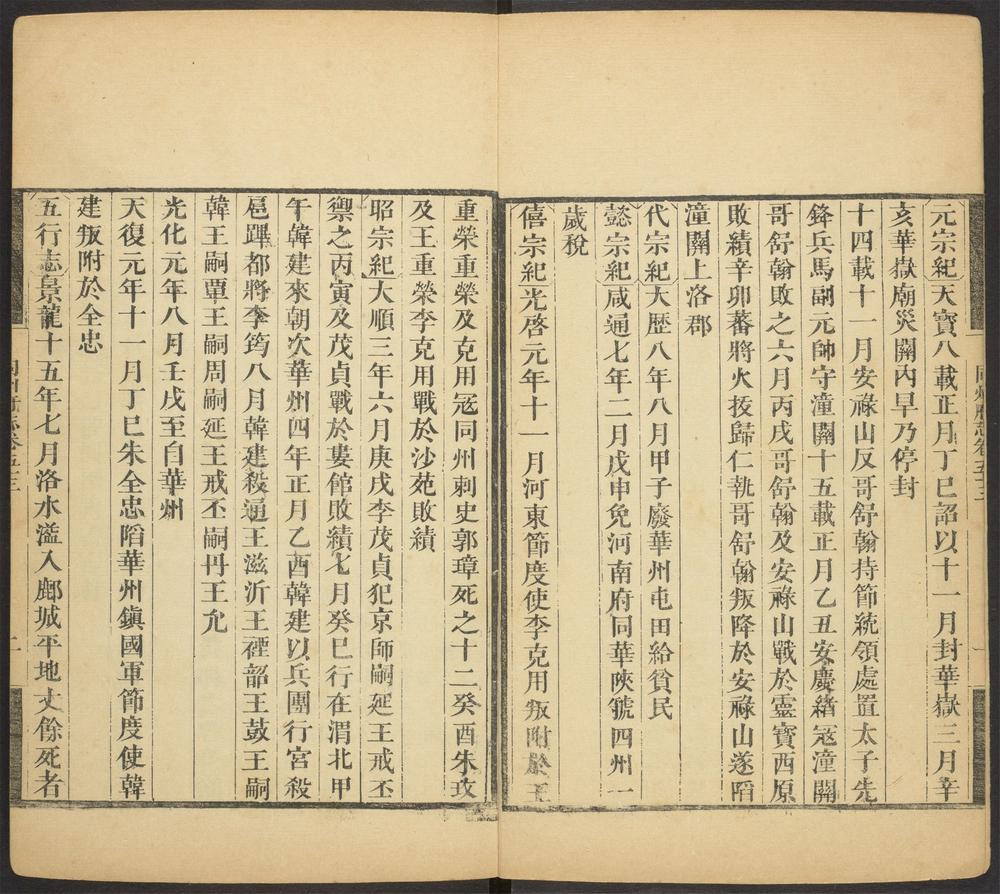 元宗紀天寶八載正月丁巳詔以十一月封華嶽三月辛
亥華嶽廟災關內旱乃停封
十四載十一月安祿山反哥舒翰持節統領處置太子先
鋒兵馬副元帥守潼關十五載正月乙丑安慶緒寇潼關
哥舒翰敗之六月丙戌哥舒翰及安祿山戰於靈寶西原
敗績辛卯蕃將火拔歸仁執哥舒翰叛降於安祿山遂陷
潼關上洛郡
代宗紀大歷八年八月甲子廢華州屯田給貧民
懿宗紀咸通七年二月戊申免河南府同華陝虢四州一
歲稅
僖宗紀光啓元年十一月河東節度使李克用叛附於王
重榮重榮及克用寇同州刺史郭璋死之十二癸酉朱玫
及王重榮李克用戰於沙苑敗績
昭宗紀大順三年六月庚戌李茂貞犯京師嗣延王戒丕
禦之丙寅及茂貞戰於婁館敗績七月癸巳行在渭北甲
午韓建來朝次華州四年正月乙酉韓建以兵圍行宮殺
扈蹕都將李筠八月韓建殺通王滋沂王禋韶王鼓王嗣
韓王嗣覃王嗣周嗣延王戒丕嗣丹王允
光化元年八月壬戌至自華州
天復元年十一月丁巳朱全忠陷華州鎮國軍節度使韓
建叛附於全忠
五行志景龍十五年七月洛水溢入鄜城平地丈餘死者